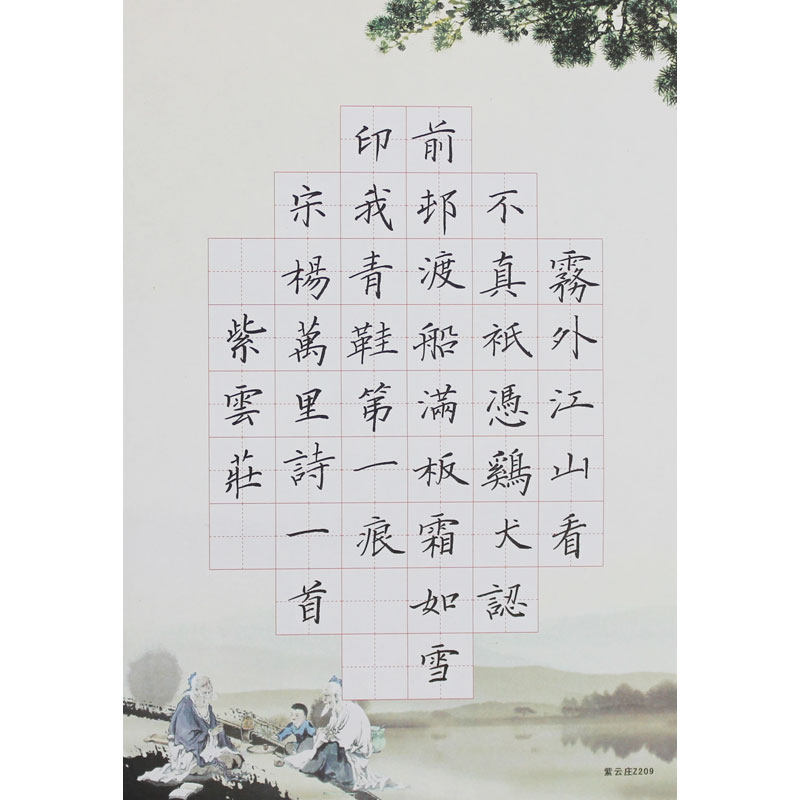 霧外江山看
不真祇憑鷄犬認
前邨渡船滿板霜如雪
印我青鞋第一痕
宋楊萬里詩一首
紫雲莊
紫云庄Z209